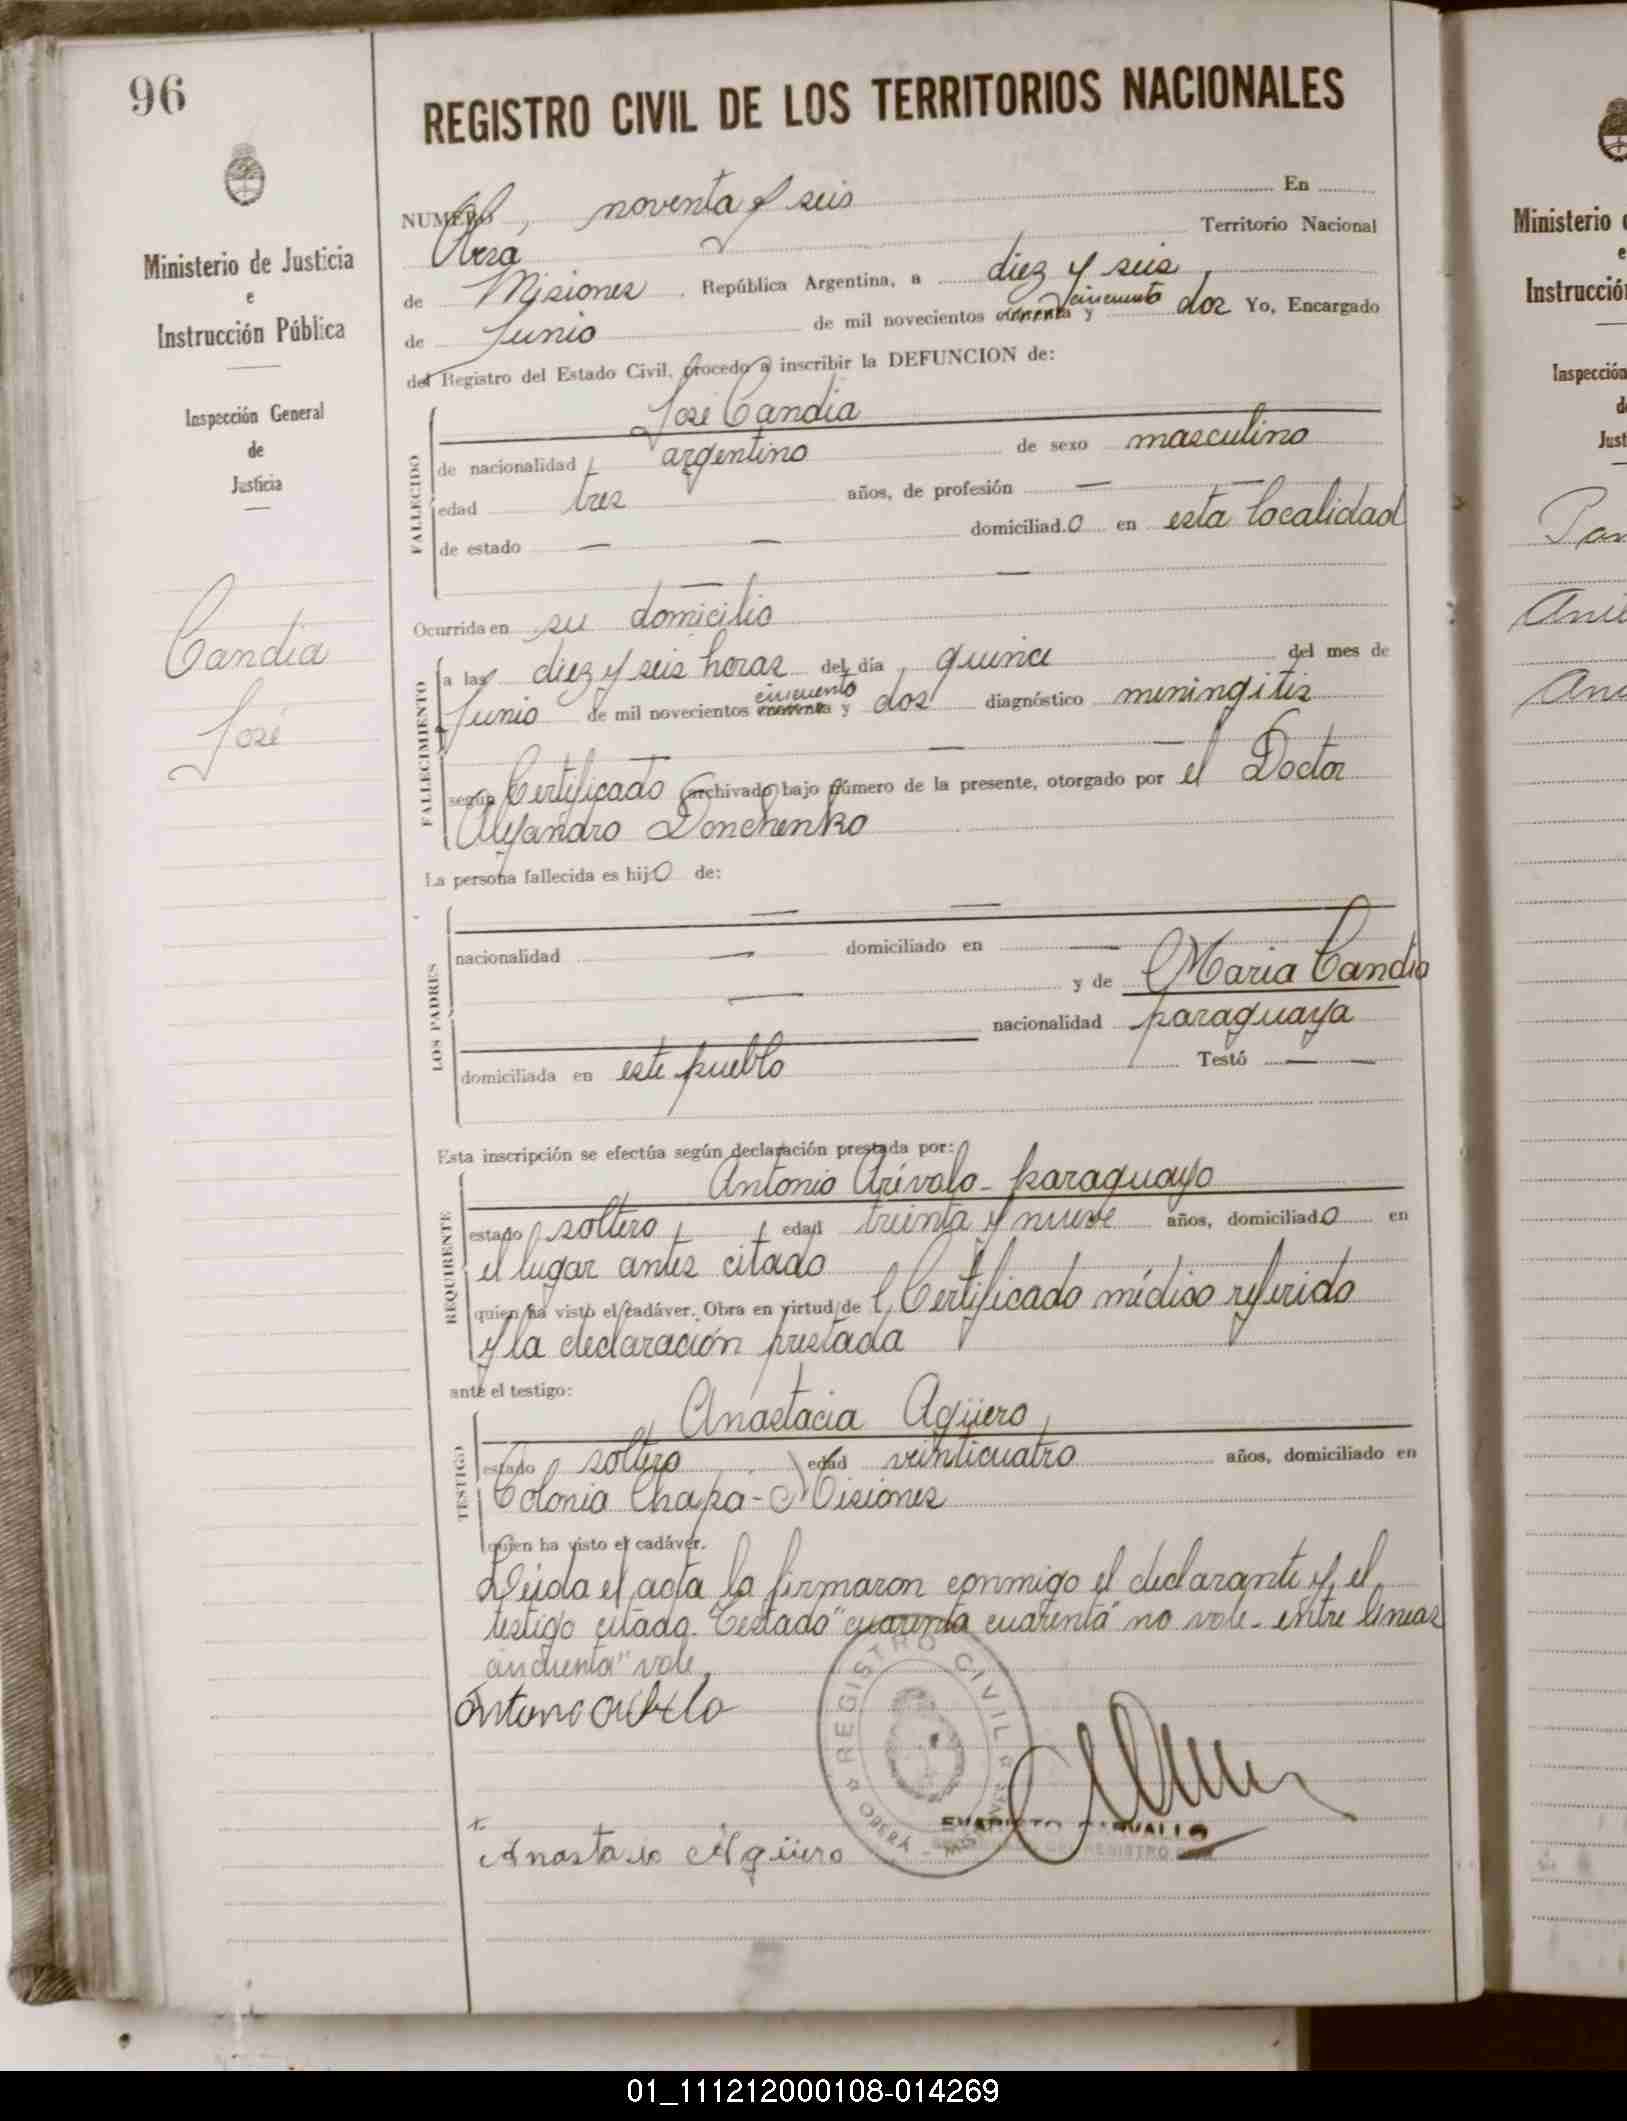 96
REGISTRO CIVIL DE LOS TERRITORIOS NACIONALES
Ministerio de Justicia
e
Instrucción Pública
Inspección General
de
Justicia
Candia
José
NUMERO noventa y seis En
Oberá Territorio Nacional
de Misiones, República Argentina, a diez y seis
de Junio de mil novecientos cuarenta y cincuenta dos Yo, Encargado
del Registro del Estado Civil, procedo a inscribir la DEFUNCION de:
FALLECIDO
José Candia
de nacionalidad argentino de sexo masculino
edad tres años, de profesión —
de estado — — domiciliado en esta localidad
— —
Ocurrida en su domicilio
FALLECIMIENTO
a las diez y seis horas del día quince del mes de
Junio de mil novecientos cuarenta y cincuenta dos diagnóstico meningitis
— — —
según Certificado archivado bajo número de la presente, otorgado por el Doctor
Alejandro Donchenko
La persona fallecida es hijo de:
LOS PADRES
— —
nacionalidad — domiciliado en —
— y de Maria Candia
nacionalidad paraguaya
domiciliada en este pueblo Testó — —
Esta inscripción se efectúa según declaración prestada por:
REQUIRENTE
Antonio Arévalo - paraguayo
estado soltero, edad treinta y nueve años, domiciliado en
el lugar antes citado
quien ha visto el cadáver. Obra en virtud de l Certificado médico referido
y la declaración prestada
ante el testigo:
TESTIGO
Anastacia Agüero,
estado soltero edad veinticuatro años, domiciliado en
Colonia Chapa - Misiones
quien ha visto el cadáver.
Leida el acta la firmaron conmigo el declarante y el
testigo citado. Testado "cuarenta cuarenta" no vale - entre lineas
cincuenta" vale,
REGISTRO CIVIL
OBERÁ - MISIONES
EVARISTO CARVALLO
REGISTRO
Anastacio Agüero
Ministerio
e
Instrucció
Inspección
d
Just
01_111212000108-014269